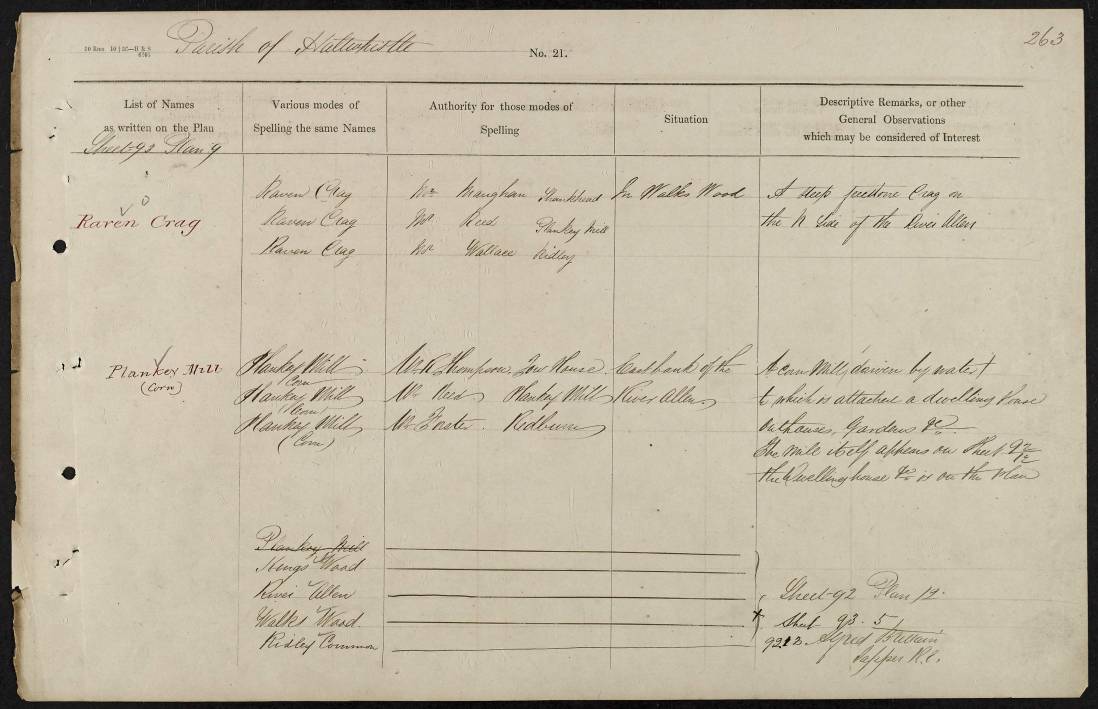 Parish of Haltwhistle
No. 21.
263
List of Names
as written on the Plan
Various modes of
Spelling the same Names
Authority for those modes of
Spelling
Situation
Descriptive Remarks, or other
General Observations
which may be considered of Interest
Sheet 93 Plan 9
Raven Crag
Raven Crag
Raven Crag
Raven Crag
Mr Maughan Shankhead
Mr Reed Plankey Mill
Mr Wallace Ridley
In Walks Wood
A steep freestone Crag on
the N Side of the River Allen
Plankey Mill
(Corn)
Plankey Mill
(Corn)
Plankey Mill
(Corn)
Plankey Mill
(Corn)
Mr R Thompson Tow House
Mr Reed Plankey Mill
Mr Forster
East bank of the
River Allen
A corn Mill, driven by water
to which is attached a dwelling house
outhouses, Gardens &c
The mill itself appears on Sheet
the dwelling house &c is on the Plan
Plankey Mill
Kings Wood
River Allen
Walks Wood
Ridley Common
Sheet 92 Plan 12
Sheet 93. 5
92.12 Alfred
Sapper R.E.